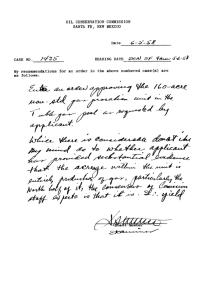 OIL CONSERVATION COMMISSION
SANTA FE, NEW MEXICO
Date 6-5-58
CASE NO. 1435 HEARING DATE
My recommendations for an order in the above numbered case(s) are
as follows:
Enter an order approving the 160-acre
non-std gas proration unit in the
Tubb gas pool as requested by
applicant.
While there is considerable doubt in
my mind as to whether applicant
has provided substantial evidence
that the acreage within the unit is
entirely productive of gas, particularly the
North half of it, the
staff that it is
Examiner